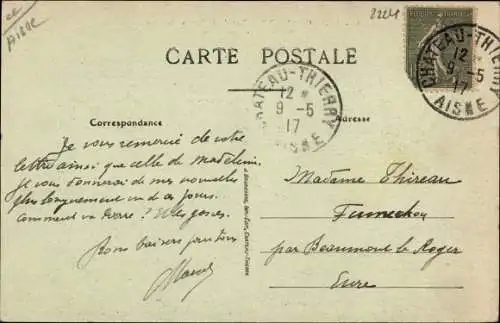 Aisne
CARTE POSTALE
CHATEAU-THIERRY
12
9-5
17
AISNE
CHATEAU-THIERRY
12 *
9-5
17
AISNE
Correspondance
Adresse
Je vous remercie de votre
lettre ainsi que celle de Madeleine.
Je vous donnerai de mes nouvelles
plus longuement un de ces jours.
Comment va Pierre ?
Bons baisers pour tous
Madame Thireau
par Beaumont le Roger
Eure